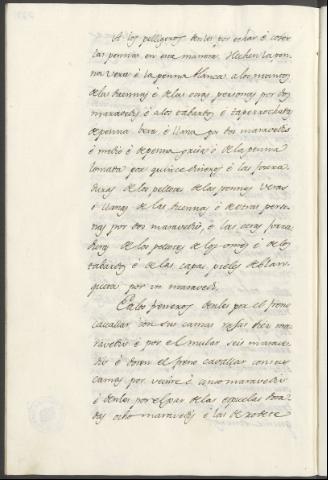 A los pelligeros denles por echar é coser
las pennas en esta manera. Hechen la pen-
na vera é la penna blanca a los mantos
de las duennas é de las otras personas por dos
maravedis é a los tabardos é
de penna vera é llana por dos maravedis
é medio é de penna grisa é de la penna
lomata por quince dineros é las forra
duras de los pellotes de las pennas veras
é llanas de las duennas é de otras perso-
nas por dos maravedis, é las otras forra
duras de los pellotes de los omes é de los
tabardos é de las capas pieles de blan-
queta por un maravedi.
Ealos freneros denles por el freno
cavallar con sus camas rasas diez ma
ravedis é por el mular seis marave-
dis é doren el freno cavallar con sus
camas por veinte é cinco maravedis
é denles por el par de las espuelas dora
das ocho maravedis é las de xodere